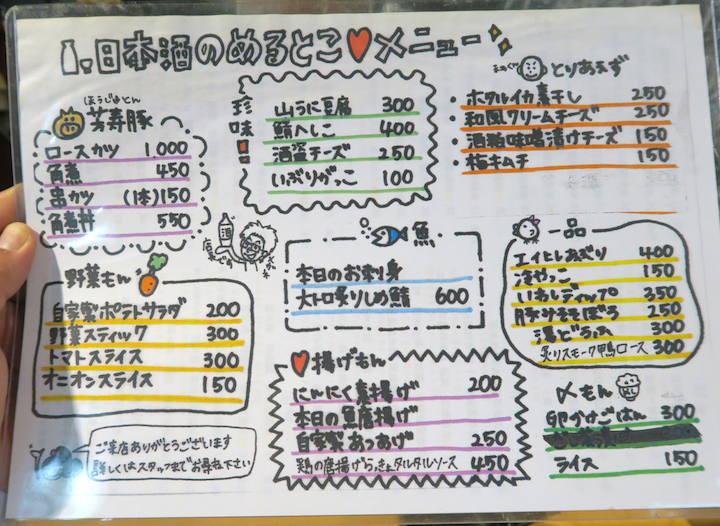 日本酒のめるとこ♥メニュー
ほうじゅとん
芳寿豚
ロースカツ 1,000
角煮 450
串カツ (1本)150
角煮丼 550
珍味
山うに豆腐 300
鯖へしこ 400
酒盗チーズ 250
いぶりがっこ 100
とりあえず
・ホタルイカ素干し 250
・和風クリームチーズ 250
・酒粕味噌漬けチーズ 150
・梅キムチ 150
野菜もん
自家製ポテトサラダ 200
野菜スティック 300
トマトスライス 300
オニオンスライス 150
酒
魚
本日のお刺身
大トロ炙りしめ鯖 600
一品
エイヒレあぶり 400
冷やっこ 150
いわしディップ 350
豚みそそぼろ 250
湯どうふ 300
炙りスモーク鴨ロース 300
♥揚げもん
にんにく素揚げ 200
本日の魚唐揚げ
自家製あつあげ 250
鶏の唐揚げらっきょタルタルソース 450
〆もん
卵かけごはん 300
ライス 150
ご来店ありがとうございます
詳しくはスタッフまでお尋ね下さい